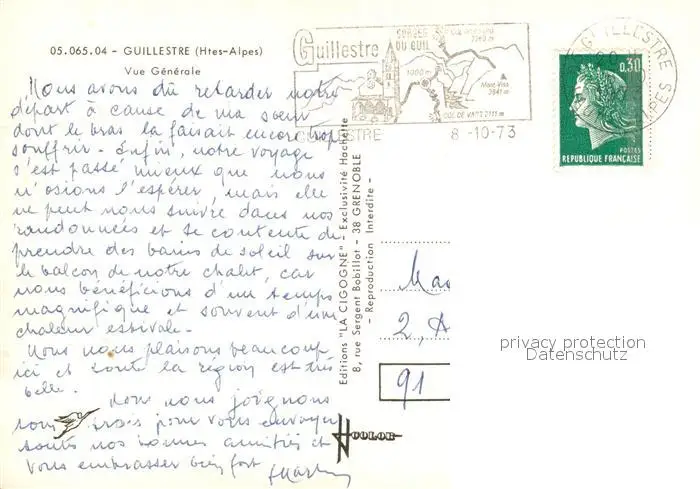 05.065.04 - GUILLESTRE (Htes-Alpes)
Vue Générale
Nous avons dû retarder notre
départ à cause de ma sœur
dont le bras la faisait encore trop
souffrir - Enfin, notre voyage
s'est passé mieux que nous
n'osions l'espérer, mais elle
ne peut nous suivre dans nos
randonnées et se contente de
prendre des bains de soleil sur
le balcon de notre chalet, car
nous bénéficions d'un temps
magnifique et souvent d'une
chaleur estivale -
Nous nous plaisons beaucoup
ici et toute la région est très
belle.
nous joignons
trois pour vous envoyer
toutes nos bonnes amitiés et
vous embrasser bien fort
Guillestre
GORGES
DU GUIL
1000 m
Mont-Viso
3841 m
COL DE VARS 2111 m
GUILLESTRE
8 -10-73
GUILLESTRE
ALPES
0,30
POSTES
REPUBLIQUE FRANÇAISE
Editions "LA CIGOGNE" - Exclusivité Hachette
8, rue Sergent Bobillot - 38 GRENOBLE
- Reproduction Interdite -
2, A
91
COLOR
privacy protection
Datenschutz